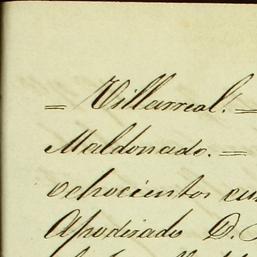 = Villarreal. =
Maldonado. =
ochocientos cu
Apoderado D.